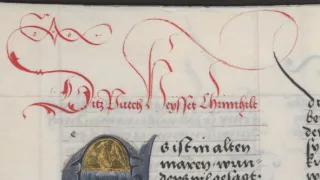 Ditz Puech Heysset Chrimhilt
ist in alten
maren wun-
ders vil gesagt